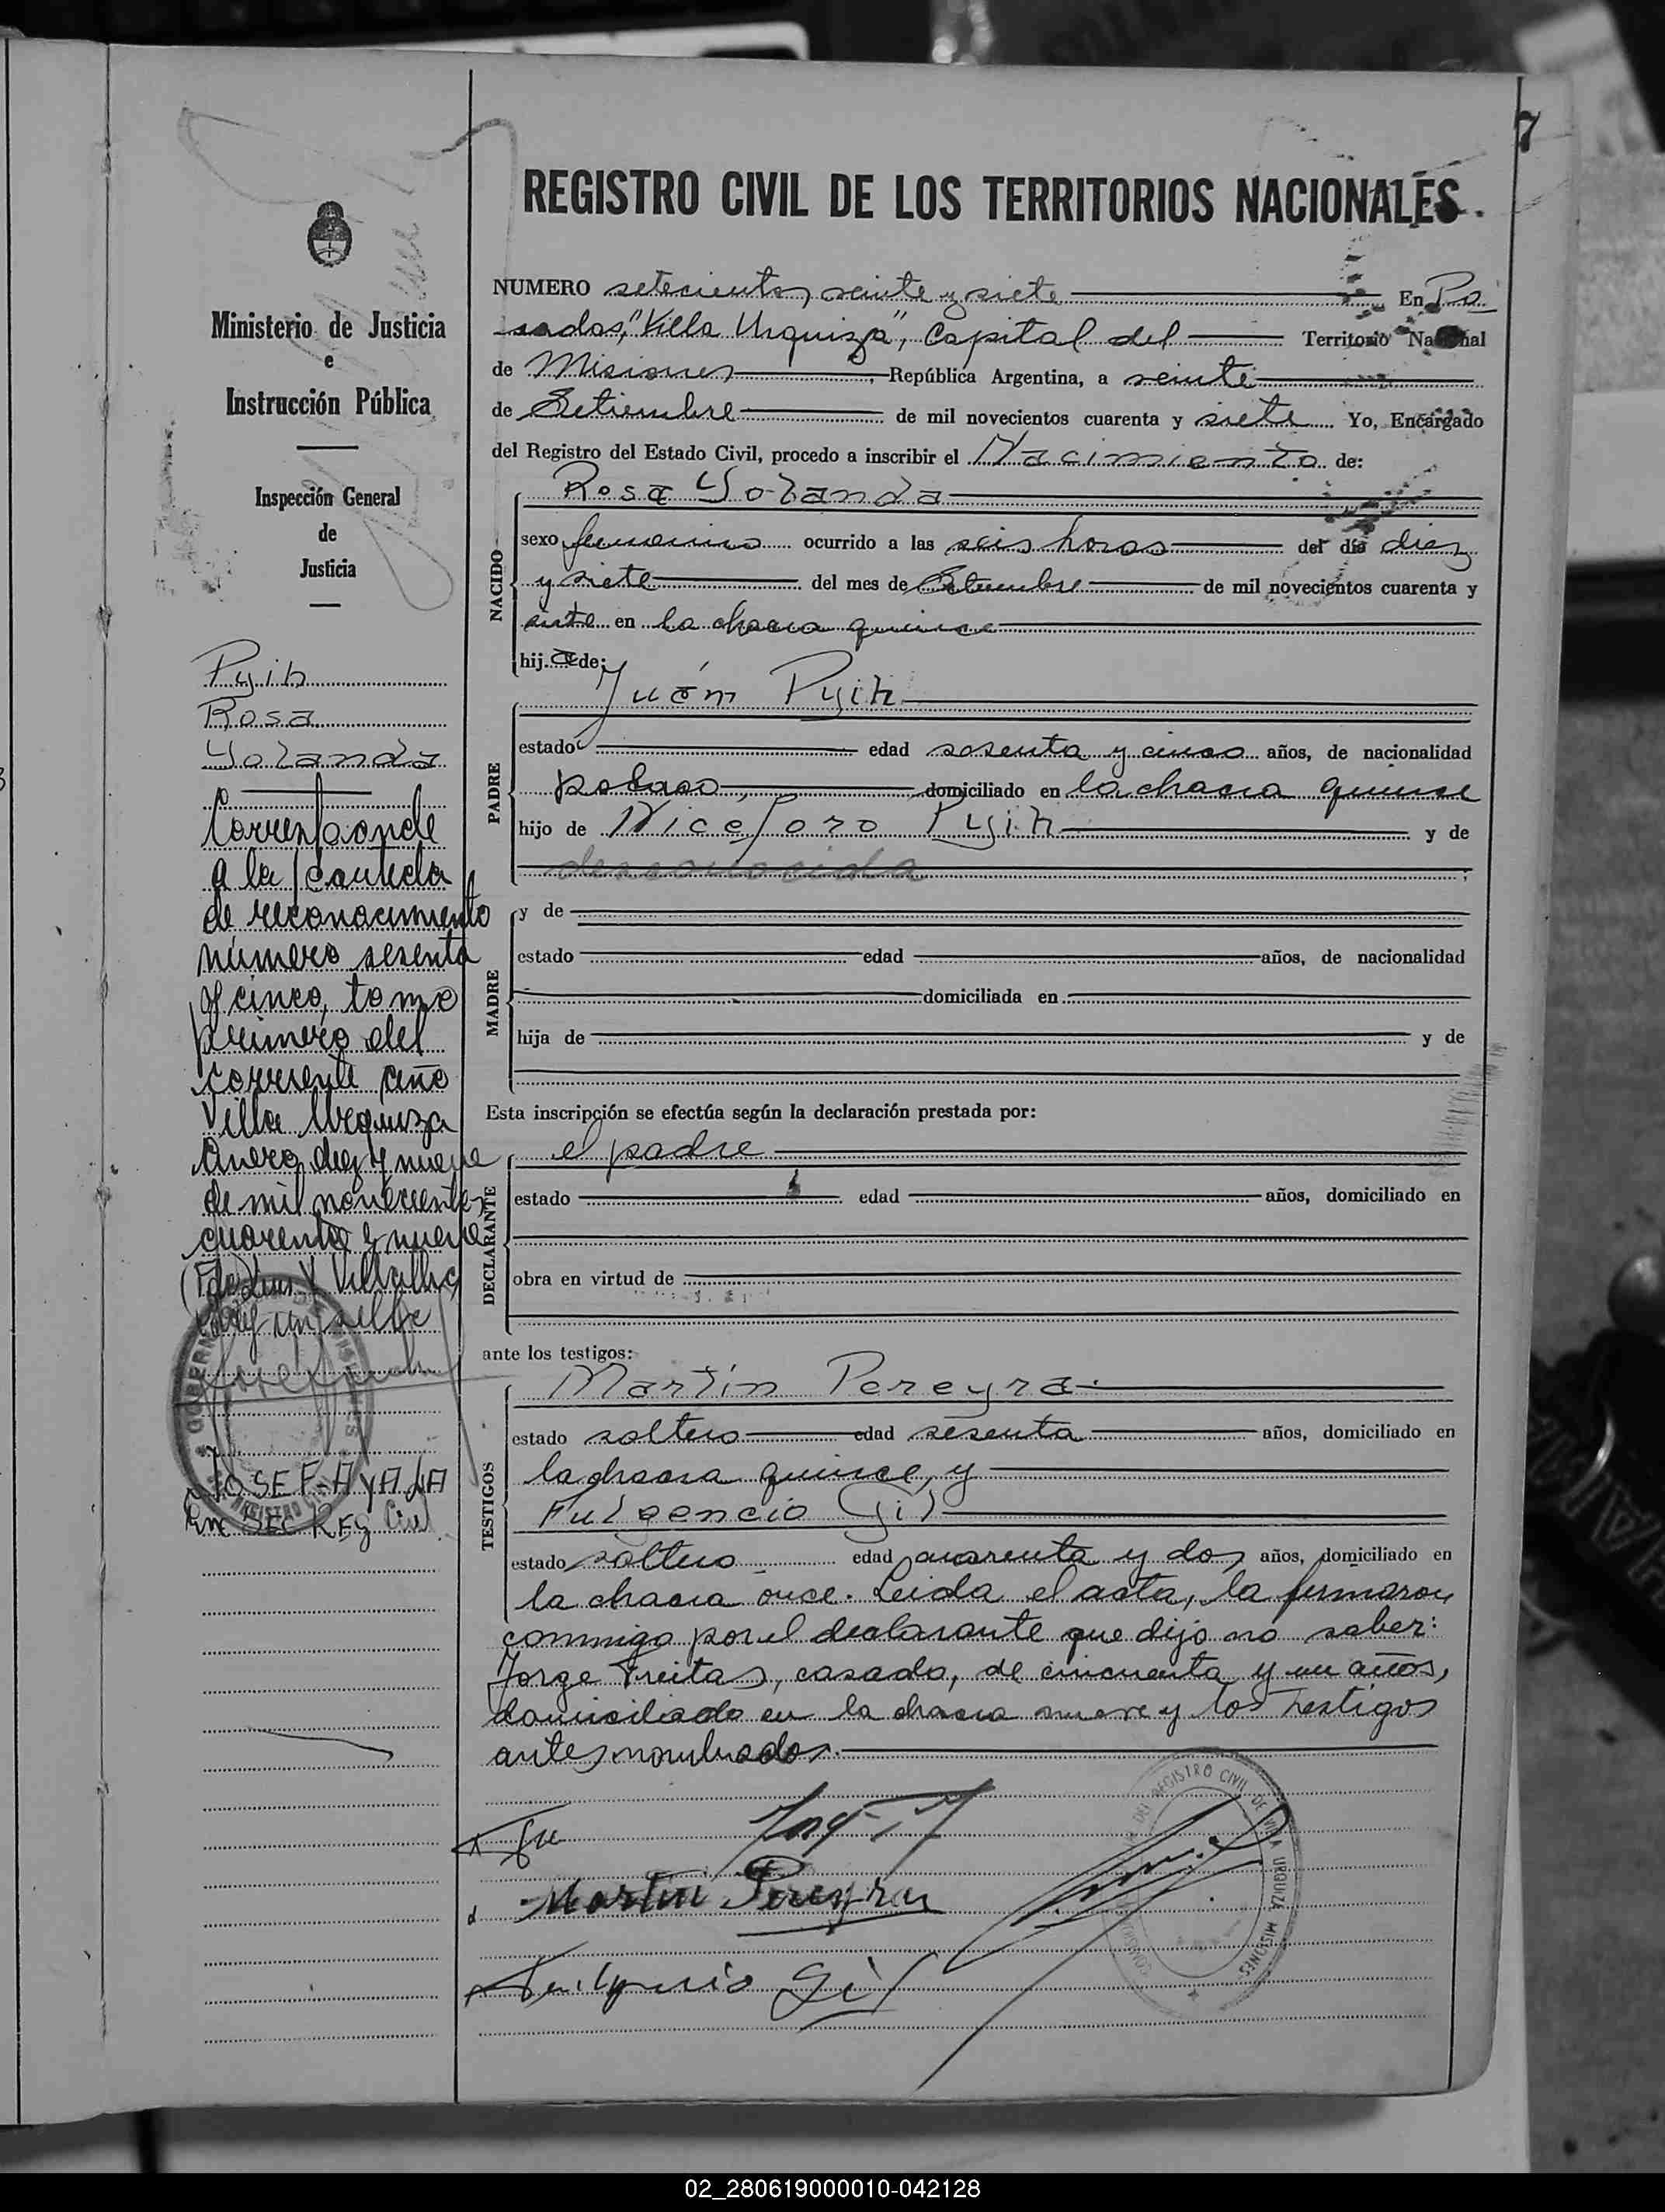 7
REGISTRO CIVIL DE LOS TERRITORIOS NACIONALES.
Ministerio de Justicia
e
Instrucción Pública
Inspección General
de
Justicia
Pyih
Rosa
Yolanda
Corresponde
a la partida
de reconocimiento
número sesenta
y cinco, tomo
primero del
corriente año
Villa Urquiza
Enero diez y nueve
de mil novecientos
cuarenta y nueve
(Fdo) Luis V. Villalba
Hay un sello
JOSE F. AYALA
Enc SEC REg Civil
NUMERO setecientos veinte y siete En Po
sadas, "Villa Urquiza", Capital del Territorio Nacional
de Misiones, República Argentina, a veinte
de Setiembre de mil novecientos cuarenta y siete Yo, Encargado
del Registro del Estado Civil, procedo a inscribir el Nacimiento de:
NACIDO
Rosa Yolanda
sexo femenino ocurrido a las seis horas del día diez
y siete del mes de Setiembre de mil novecientos cuarenta y
siete en la chacra quince
hija de:
PADRE
Juán Pyih
estado edad sesenta y cinco años, de nacionalidad
polaco, domiciliado en la chacra quince
hijo de Niceforo Pyih y de
desconocida
MADRE
y de
estado edad años, de nacionalidad
domiciliada en
hija de y de
Esta inscripción se efectúa según la declaración prestada por:
DECLARANTE
el padre
estado edad años, domiciliado en
obra en virtud de
ante los testigos:
TESTIGOS
Martín Pereyra
estado soltero edad sesenta años, domiciliado en
la chacra quince, y
Fulgencio Gil
estado soltero edad cuarenta y dos años, domiciliado en
la chacra once. Leida el acta, la firmaron
conmigo por el declarante que dijo no saber:
Jorge Freitas, casado, de cincuenta y un años,
domiciliado en la chacra nueve y los testigos
antes nombrados.
Martin Pereyra
Fulgencio Gil
REGISTRO CIVIL DE VILLA URQUIZA MISIONES
02_280619000010-042128